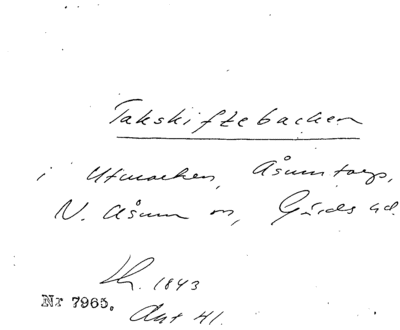 Takskiftebacken
i Utmarken, Åsumtorp,
N. Åsum sn, Gärds hd.
1843
Nr 7965.
Akt 41.